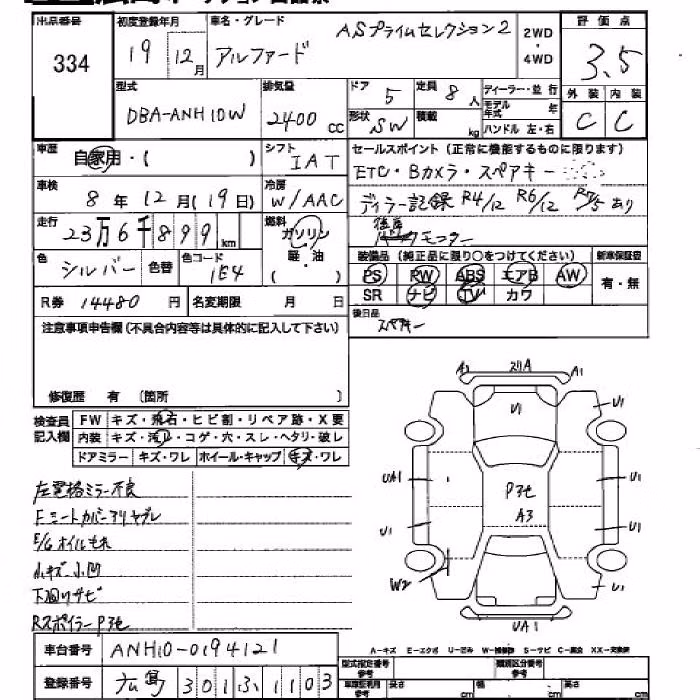 出品番号 初度登録年月 車名・グレード ASプライムセレクション2 2WD・4WD 評価点
334 19 12月 アルファード 3.5
型式 排気量 ドア 定員 ディーラー・並行 外装 内装
DBA-ANH10W 2400cc 5 8人 モデル年式 年 C C
形状 SW 積載 kg ハンドル 左・右
車歴 自家用・( ) シフト IAT セールスポイント(正常に機能するものに限ります)
ETC・Bカメラ・スペアキー
車検 8年12月(19日) 冷房 W/AAC ディラー記録 R4/12 R6/12 R7/5 あり
走行 23万6千899km 燃料 ガソリン 軽・油 ( ) 後席 モニター
色 シルバー 色替 色コード 1E4 装備品(純正品に限り○をつけてください) 新車保証書
PS PW ABS エアB AW 有・無
R券 14480円 名変期限 月 日 SR ナビ TV カワ
注意事項申告欄(不具合内容等は具体的に記入して下さい) 後日品 スペアキー
修復歴 有 〔箇所 〕
検査員記入欄 FW キズ・飛石・ヒビ割・リペア跡・X要
内装 キズ・汚れ・コゲ・穴・スレ・ヘタリ・破レ
ドアミラー キズ・ワレ ホイール・キャップ キズ・ワレ
左電格ミラー不良
Fシートカバースリヤブレ
E/Gオイルもれ
小キズ小凹
下廻りサビ
Rスポイラー P3セ
A3 スリA A1
U1 U1
UA1 U1
P3セ
A3
U1 U1
W2 U1
UA1
A-キズ E-エクボ U-凹み W-補修跡 S-サビ C-腐蝕 XX-交換済
車台番号 ANH10-0194121 型式指定番号 参考 類別区分番号 参考
登録番号 広島 301 ふ 1103 長さ cm 幅 cm 高さ cm